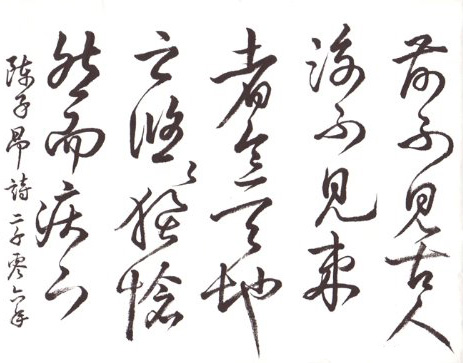 前不見古人
後不見来
者念天地
之悠々獨愴
然而涙下
陳子昂詩二千零六年